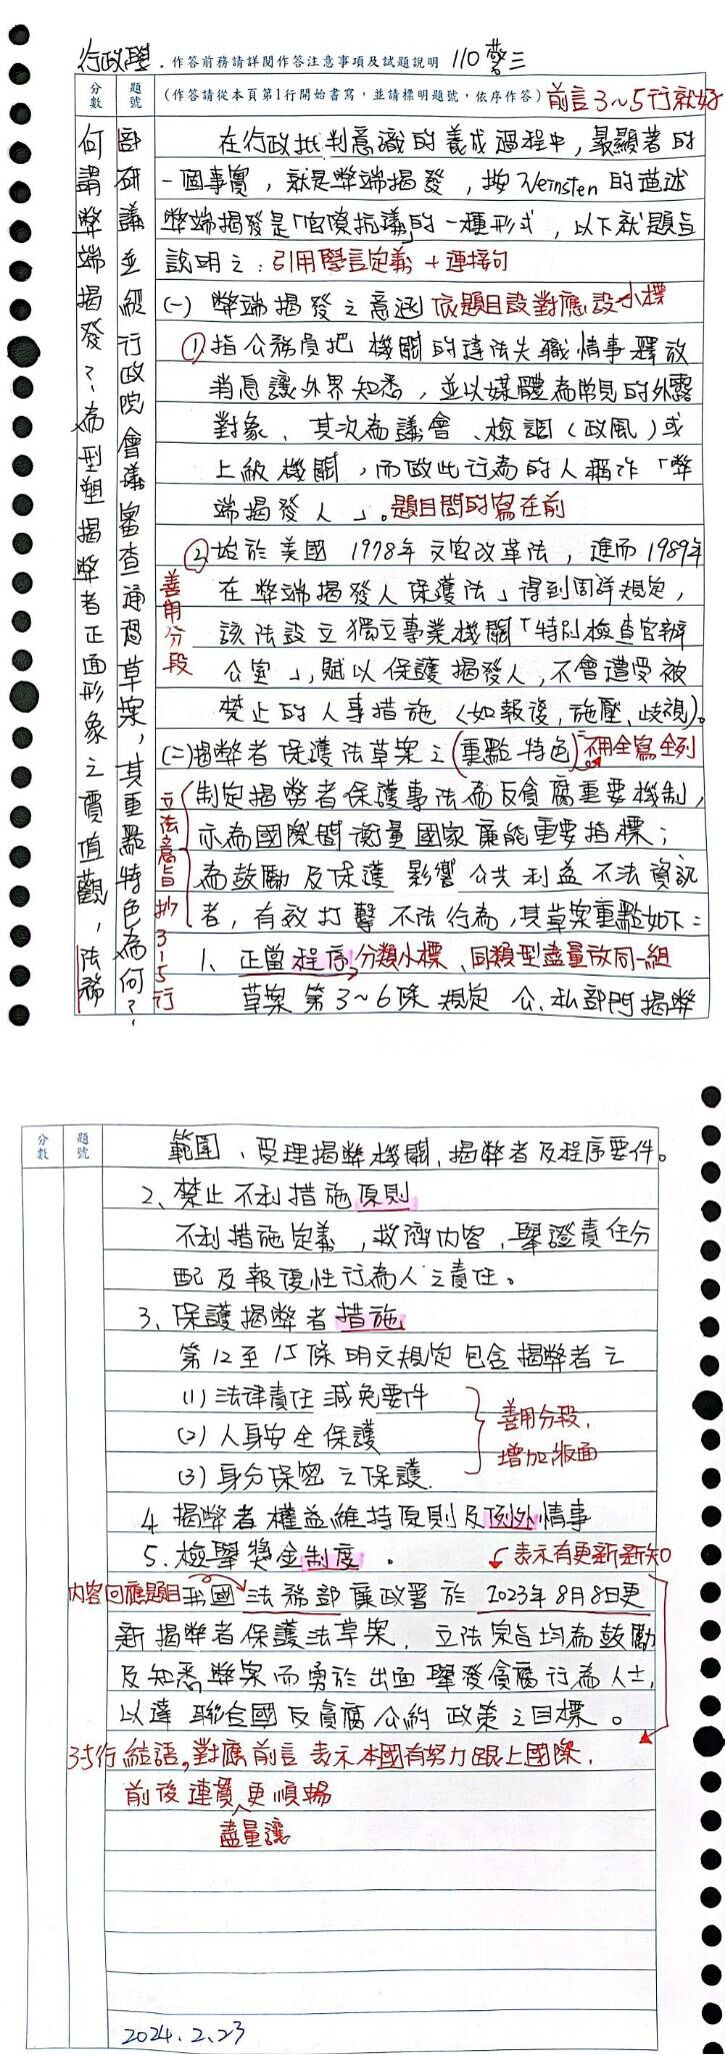 行政學. 作答前務請詳閱作答注意事項及試題說明 110 警三
分數
題號
(作答請從本頁第1行開始書寫,並請標明題號,依序作答) 前言3~5行就好
何謂弊端揭發?為型塑揭弊者正面形象之價值觀,法務
部研議並經行政院會議審查通過草案,其重點特色為何?
在行政批判意識的養成過程中,最顯著的
一個事實,就是弊端揭發,按Wernsten的描述
弊端揭發是「官僚抗議」的一種形式,以下就題旨
說明之:引用學言定義+連接句
(一) 弊端揭發之意涵 依題目設對應設小標
①指公務員把機關的違法失職情事釋放
消息讓外界知悉,並以媒體為常見的外露
對象、其次為議會、檢調(政風)或
上級機關,而做此行為的人稱作「弊
端揭發人」。題目問的寫在前
②始於美國1978年文官改革法,進而1989年
在弊端揭發人保護法」得到周詳規定,
善用分段
該法設立獨立專業機關「特別檢查官辦
公室」,賦以保護揭發人,不會遭受被
禁止的人事措施(如報復,施壓、歧視)。
(二)揭弊者保護法草案之(重點特色)不用全寫全列
立法意旨抄3-5行
制定揭弊者保護專法為反貪腐重要機制,
亦為國際間衡量國家廉能重要指標;
為鼓勵及保護影響公共利益不法資訊
者,有效打擊不法行為,其草案重點如下:
1、正當程序 分類小標、同類型盡量放同一組
草案第3~6條規定公、私部門揭弊
分數
題號
範圍、受理揭弊機關、揭弊者及程序要件。
2、禁止不利措施原則
不利措施定義,救濟內容,舉證責任分
配及報復性行為人之責任。
3、保護揭弊者措施
第12至15條明文規定包含揭弊者之
(1)法律責任減免要件
(2)人身安全保護
(3)身分保密之保護.
善用分段,
增加版面
4.揭弊者權益維持原則及例外情事
5.檢舉獎金制度。
表示有更新新知
內容回應題目 我國法務部廉政署於2023年8月8日更
新揭弊者保護法草案,立法宗旨均為鼓勵
及知悉弊案而勇於出面舉發貪腐行為人士,
以達聯合國反貪腐公約政策之目標。
3-5行結語,對應前言 表示本國有努力跟上國際,
前後連貫更順暢
盡量讓
2024.2.23